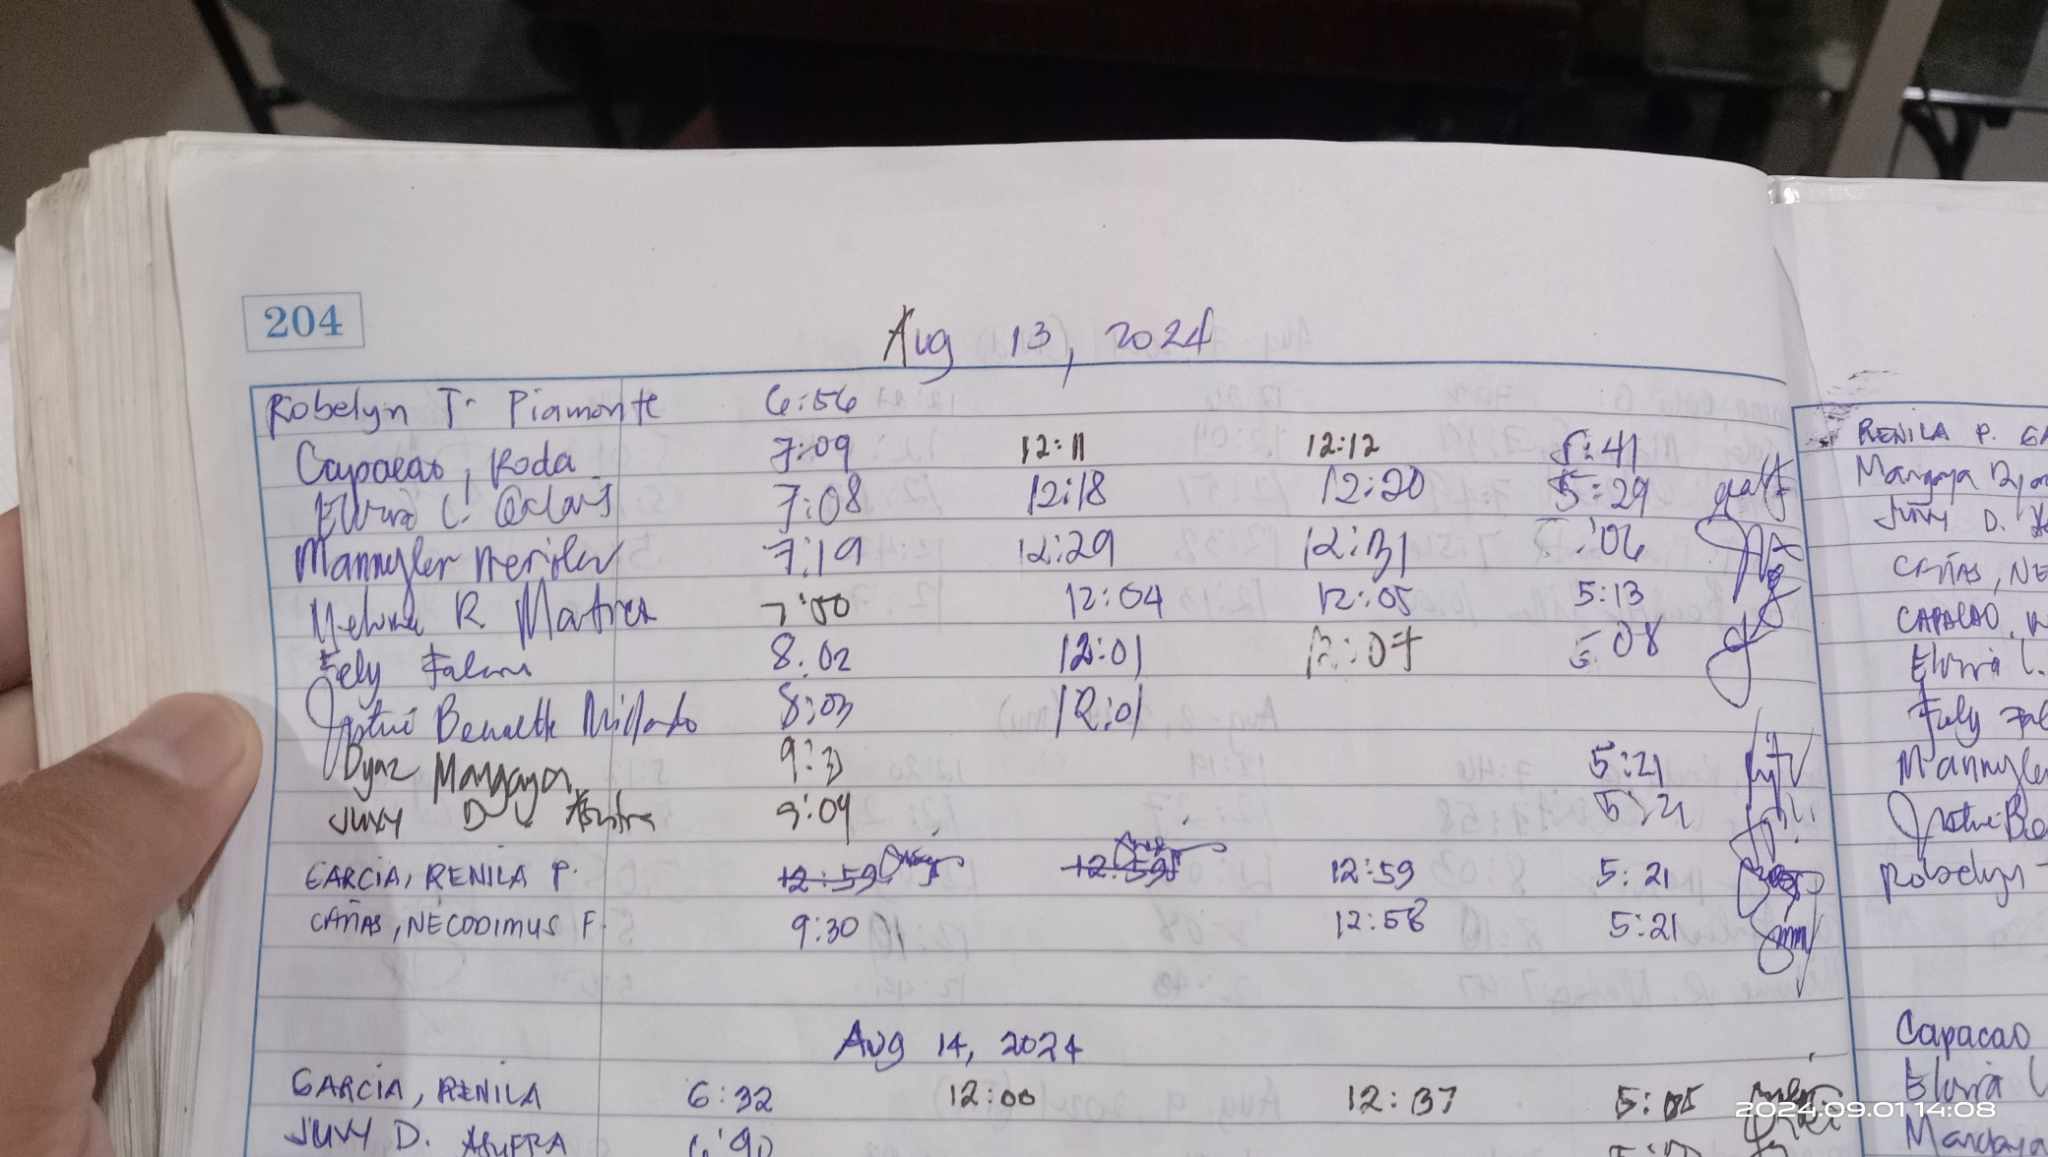 204
Aug 13, 2024
Robelyn T. Piamonte 6:56
Capacao, Roda 7:09 12:11 12:12 5:41
Elvira L. 7:08 12:18 12:20 5:29
Mannyler 7:19 12:29 12:31 :06
R. 7:50 12:04 12:05 5:13
Fely 8:02 12:01 12:07 5:08
8:03 12:01
Dyaz Mangaya 9:31 5:21
JUVY D. 9:04 5:21
GARCIA, RENILA P. 12:59 12:59 12:59 5:21
CAÑAS, NECODIMUS F. 9:30 12:58 5:21
Aug 14, 2024
GARCIA, RENILA 6:32 12:00 12:37 5:05
JUVY D.
RENILA P. GA
Mangaya Dya
JUVY D.
CAÑAS, NE
CAPACAO,
Elvira L.
Fely Fal
Mannyler
Robelyn T
Capacao
Elvira L
Mangaya
2024.09.01 14:08